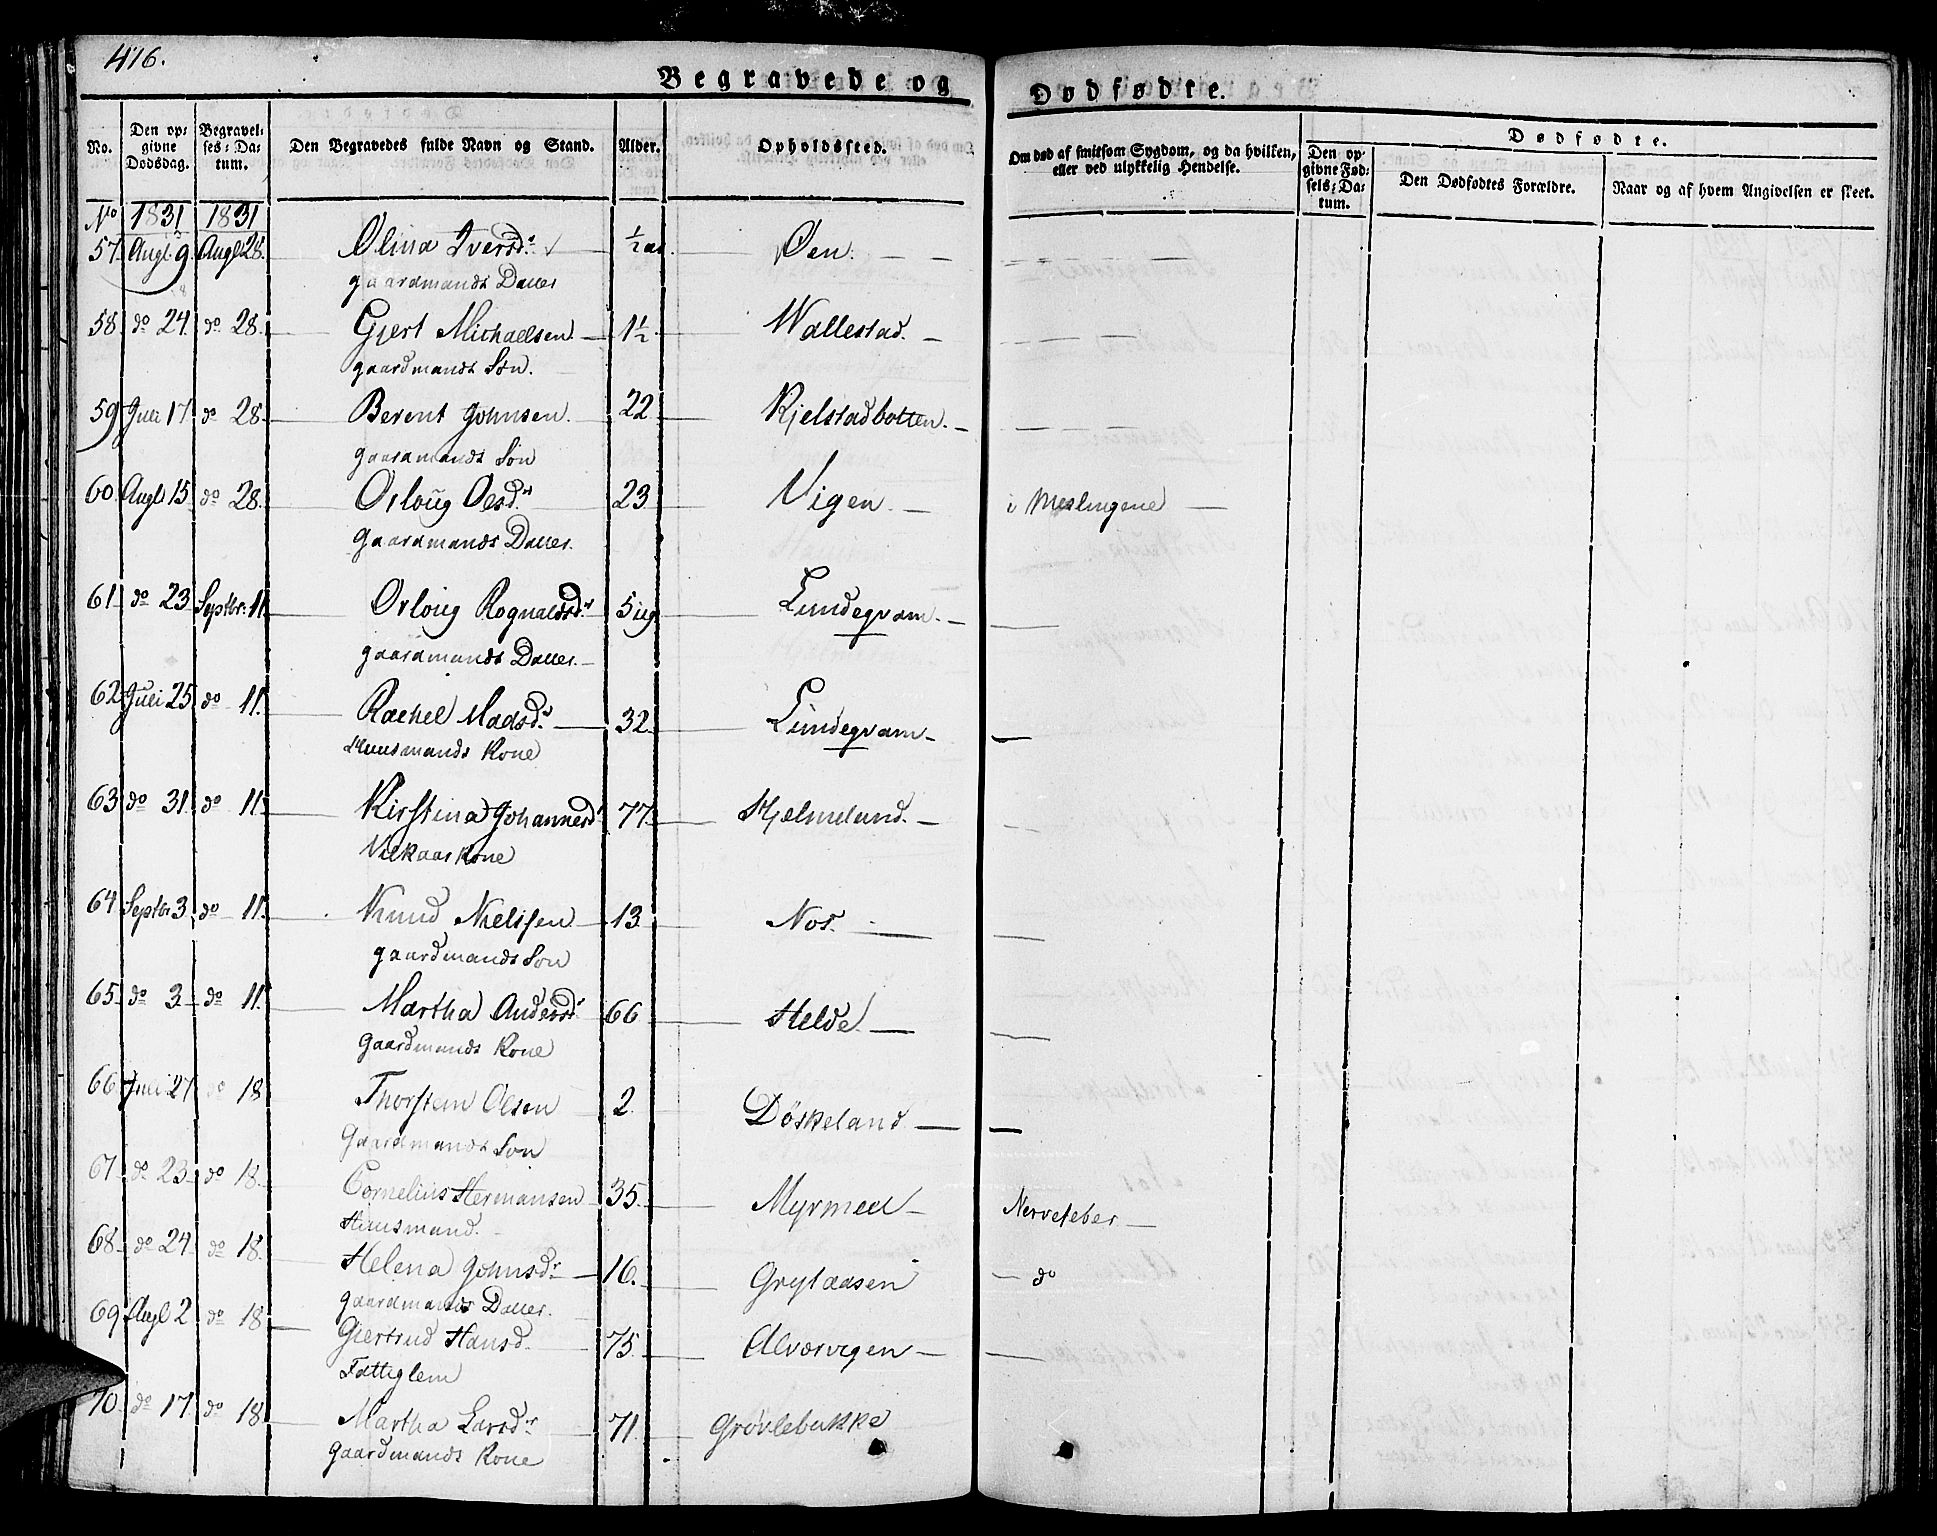 416.
Begravede og Dødfødte.
No.
Den opgivne Dødsdag.
Begravelses-Datum.
Den Begravedes fulde Navn og Stand.
Alder.
Opholdssted.
Om død af smitsom Sygdom, og da hvilken, eller ved ulykkelig Hendelse.
Dødfødte.
Den opgivne Fødsels-Datum.
Den Dødfødtes Forældre.
Naar og af hvem Angivelsen er skeet.
No 1831 1831
57 Augl 9. Augl 28. Olina Iversd. ½ aar Øen.
gaardmands Datter
58 do 24. do 28. Gjert Michaelsen 1½ Wallestad.
gaardmands Søn.
59 Juli 17 do 28. Berent Johnsen. 22 Kjelstadbotten.
gaardmands Søn
60. Augl 15. do 28. Orloug Olsd. 23 Vigen. i Meslingene
Gaardmands Datter.
61. do 23 Septbr. 11. Orloug Rognaldsd. 5 ug Lundeqvam.
gaardmands Datter.
62 Juli 25 do 11. Rachel Madsd. 32. Lundeqvam
Huusmands Kone
63 do 31. do 11. Kirstina Johannesd. 77. Hjelmeland.
Vilkaars Kone
64 Septbr 3. do 11. Knud Nielssen 13 Nos.
gaardmands Søn
65. do 3 do 11. Martha Andersd. 66 Helde
Gaardmands Kone
66 Juli 27 do 18 Thorstein Olsen 2. Døskeland
Gaardmands Søn
67. do 23. do 18. Cornelius Hermansen 35. Myrmed Nervefeber
Huusmand.
68. do 24. do 18. Helena Johnsd. 16. Grytaasen do
gaardmands Datter.
69 Augl 2 do 18. Giertrud Hansd. 75. Alværvigen
Fattiglem
70. do 17. do 18. Martha Larsd. 71. Grøvlebakke
Gaardmands Kone